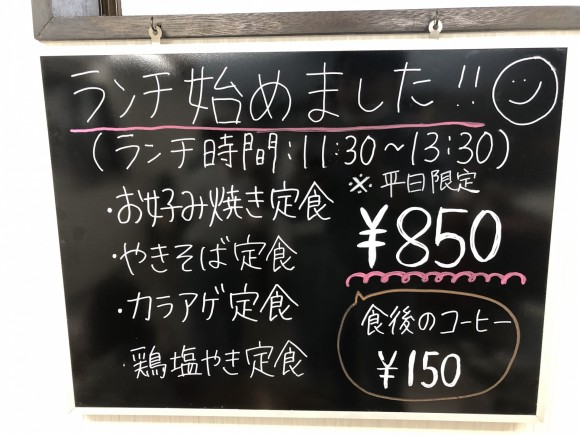 ランチ始めました!!
(ランチ時間:11:30~13:30)
※平日限定
・お好み焼き定食
・やきそば定食
・カラアゲ定食
・鶏塩やき定食
¥850
食後のコーヒー
¥150